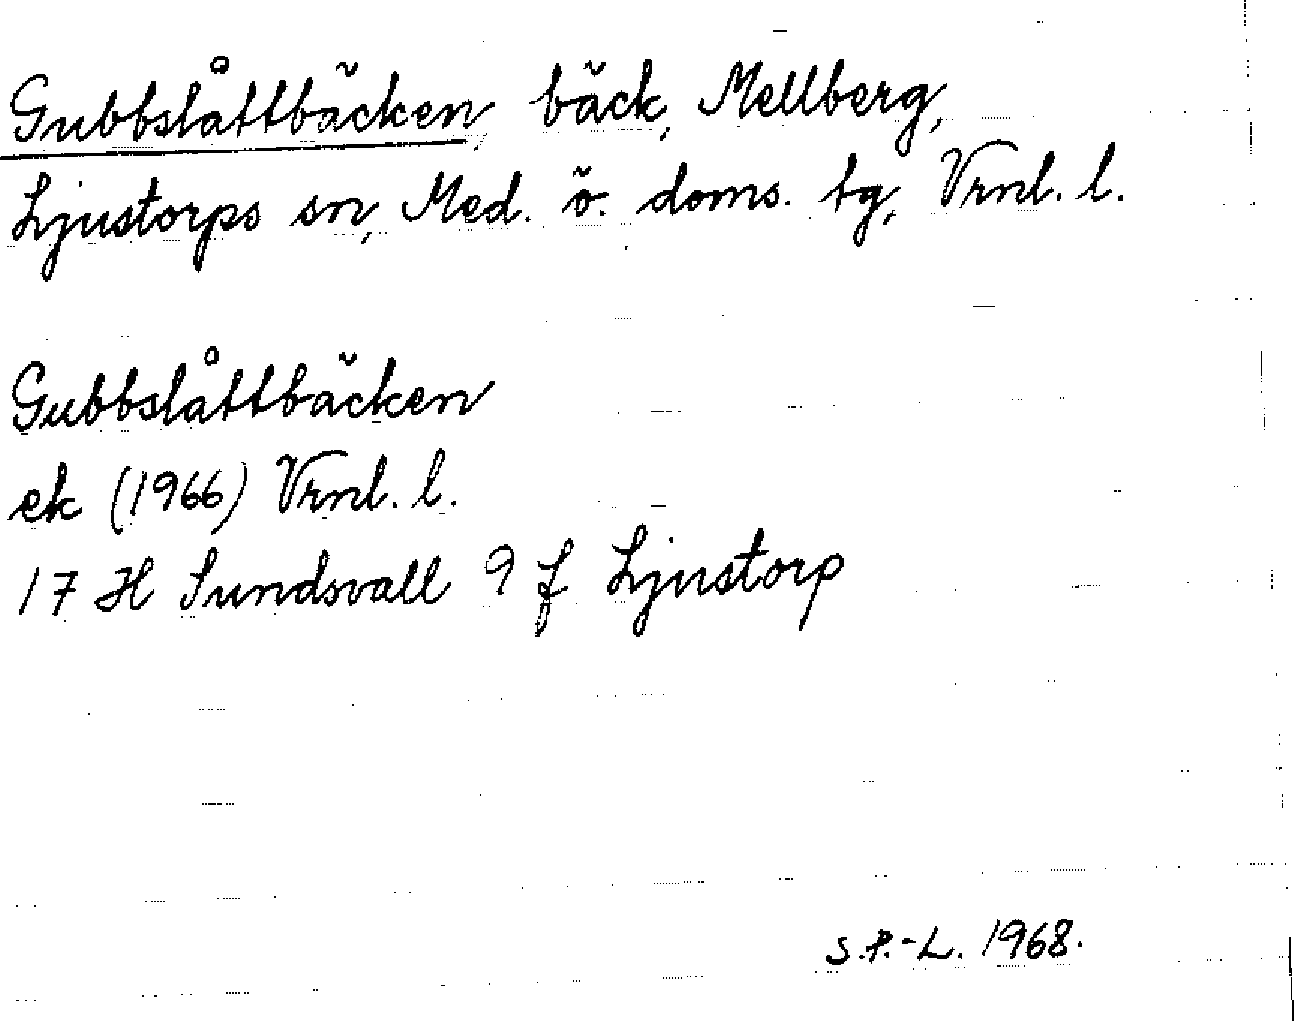 Gubbslåttbäcken, bäck, Mellberg,
Ljustorps sn, Med. ö. doms. tg, Vrnl. l.
Gubbslåttbäcken
ek (1966) Vrnl. l.
17 H Sundsvall 9 f Ljustorp
S.P.-L. 1968.